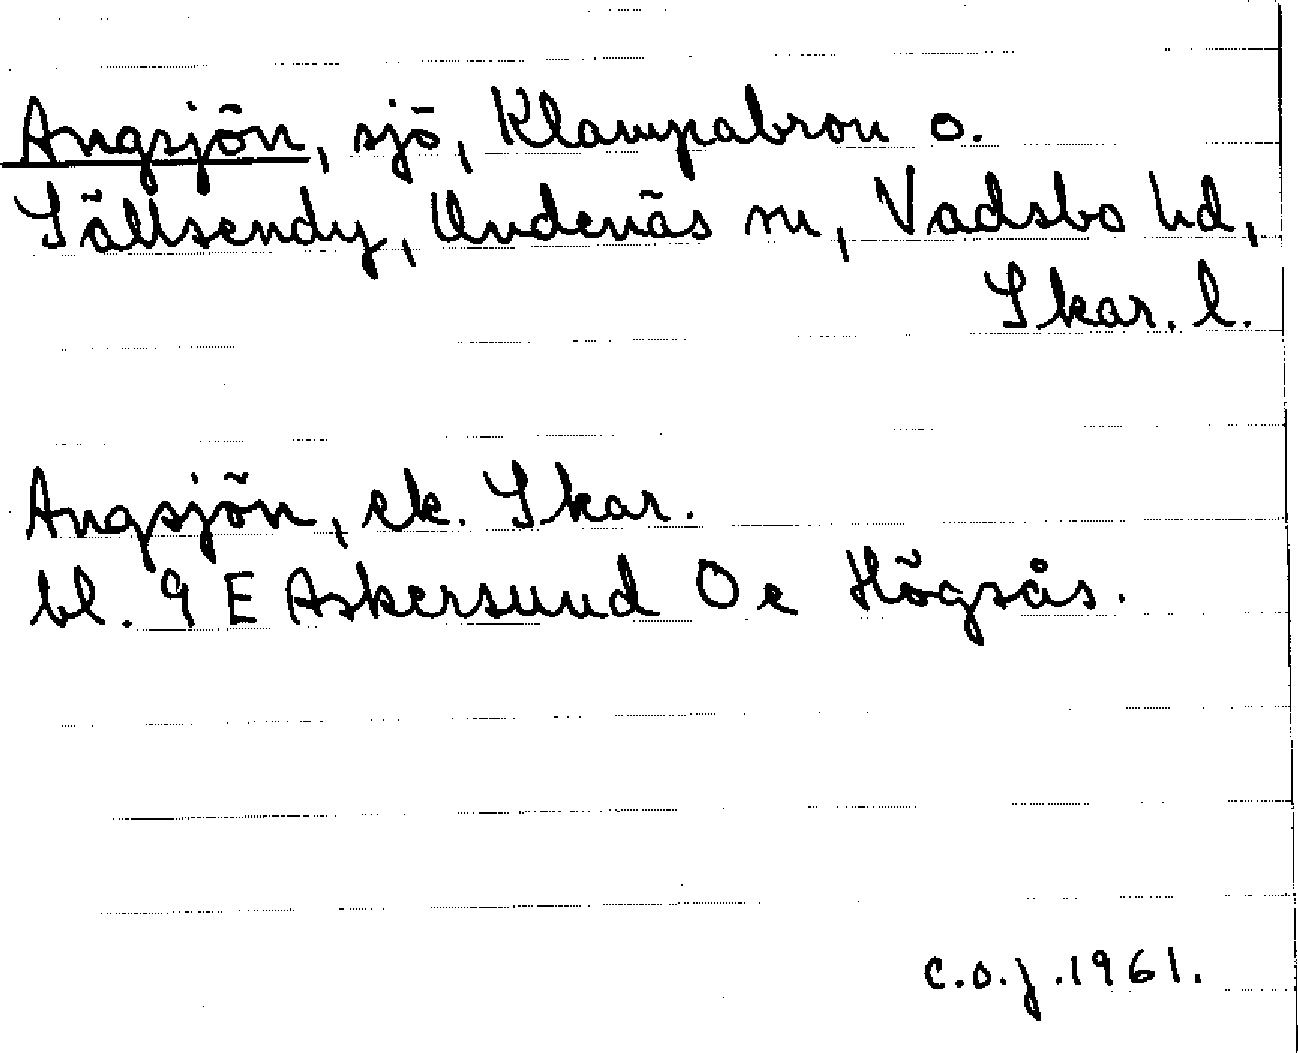 Angsjön, sjö, Klampabron o.
Sällsendy, Undenäs sn, Vadsbo hd,
Skar. l.
Angsjön, ek. Skar.
bl. 9 E Askersund Oe Högsås.
C.O.J. 1961.